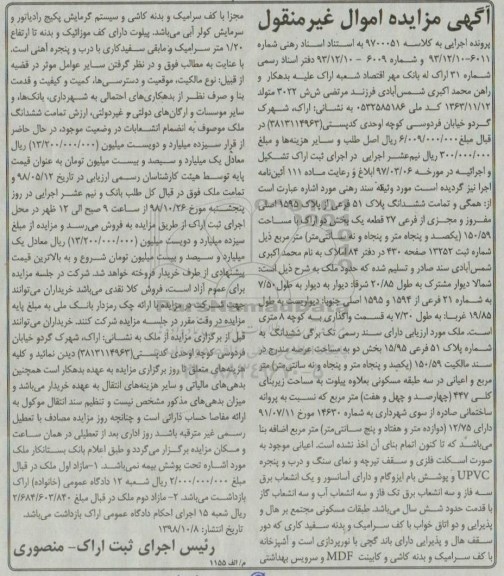 آگهی مزایده اموال غیرمنقول
پرونده اجرایی به کلاسه ۹۷۰۰۰۵۱ به استناد اسناد رهنی شماره
۶۰۱۱-۹۳/۱۲/۱۰ و شماره ۶۰۰۹ - ۹۳/۱۲/۱۰ دفتر اسناد رسمی
شماره ۳۱ اراک له بانک مهر اقتصاد شعبه اراک علیه بدهکار و
راهن محمد اکبری شمس‌آبادی فرزند مرتضی ش‌ش ۲۰۲۲ متولد
۱۳۶۳/۱۱/۱۲ کد ملی ۰۵۳۲۵۸۵۱۸۶ به نشانی: اراک، شهرک
گردو خیابان فردوسی کوچه اوحدی کدپستی(۳۸۱۳۱۱۴۹۶۳) در
قبال مبلغ ۶/۰۰۹/۰۰۰/۰۰۰ ریال اصل طلب و سایر هزینه‌ها و مبلغ
۳۰۰/۰۰۰/۰۰۰ ریال نیم‌عشر اجرایی در اجرای ثبت اراک تشکیل
و اجرائیه در مورخه ۹۷/۰۲/۰۶ ابلاغ و رعایت ماده ۱۱۱ آئین‌نامه
اجرا نیز گردیده است مورد وثیقه سند رهنی مورد اشاره عبارت است
از: همگی و تمامت ششدانگ پلاک ۵۱ فرعی از پلاک ۱۵۹۵ اصلی
مفروز و مجزی از فرعی ۲۷ قطعه یک بخش دو اراک با مساحت
۱۵۰/۵۹ (یکصد و پنجاه متر و پنجاه و نه سانتی‌متر) متر مربع ذیل
شماره ثبت ۱۳۲۵۲ صفحه ۴۳۰ در دفتر ۸۴ املاک به نام محمد اکبری
شمس‌آبادی سند صادر و تسلیم شده که حدود ملک به شرح ذیل است:
شمالا دیوار مشترک به طول ۲۰/۸۵ شرقا: دیوار به دیوار به طول ۷/۵۰
به شماره ۲۱ فرعی از ۱۵۹۴ و ۱۵۹۵ اصلی جنوبا: دیواریست به طول
۱۹/۸۵ غربا: به طول ۷/۳۰ به قسمت واگذاری به کوچه ۸ متری
است. ملک مورد ارزیابی دارای سند رسمی تک برگی ششدانگ به
شماره پلاک ۵۱ فرعی ۱۵/۹۵ بخش دو به مساحت عرصه مندرج در
سند مالکیت ۱۵۰/۵۹ (یکصد و پنجاه متر و پنجاه و نه سانتی‌متر) متر
مربع و اعیانی در سه طبقه مسکونی بعلاوه پیلوت به مساحت زیربنای
کلی ۴۴۷ (چهارصد و چهل و هفت) متر مربع که نسبت به پروانه
ساختمانی صادره از سوی شهرداری به شماره ۱۴۶۳۰ مورخ ۹۱/۰۷/۱۱
دارای ۱۲/۷۵ (دوازده متر و هفتاد و پنج سانتی‌متر) متر مربع اضافه بنا
می‌باشد که تا کنون اتمام بنای آن اخذ نشده است. اعیانی موجود به
صورت اسکلت فلزی و سقف تیرچه و نمای سنگ و درب و پنجره
UPVC و پوشش بام ایزوگام و دارای آسانسور و یک انشعاب برق
سه فاز و سه انشعاب برق تک فاز و سه انشعاب آب و سه انشعاب گاز
با قدمت حدود شش سال می‌باشد. طبقات مسکونی مجتمع بر هال و
پذیرایی و دو اتاق خواب با کف سرامیک و بدنه سفید کاری که دور
سقف هال و پذیرایی دارای باند گچی با نورپردازی است و آشپزخانه
با کف سرامیک و بدنه کاشی و کابینت MDF و سرویس بهداشتی
مجزا با کف سرامیک و بدنه کاشی و سیستم گرمایش پکیج رادیاتور و
سرمایش کولر آبی می‌باشد. پیلوت دارای کف موزائیک و بدنه تا ارتفاع
۱/۲۰ متر سرامیک و مابقی سفیدکاری با درب و پنجره آهنی است.
با عنایت به مطالب فوق و در نظر گرفتن سایر عوامل موثر در قضیه
از قبیل: نوع مالکیت، موقعیت و دسترسی‌ها، کمیت و کیفیت و قدمت
بنا و صرف نظر از بدهکاری‌های احتمالی به شهرداری، بانک‌ها، و
سایر موسسات و ارگان‌های دولتی و غیردولتی، ارزش تمامت ششدانگ
ملک موصوف به انضمام انشعابات در وضعیت موجود، در حال حاضر
از قرار سیزده میلیارد و دویست میلیون (۱۳/۲۰۰/۰۰۰/۰۰۰) ریال
معادل یک میلیارد و سیصد و بیست میلیون تومان به عنوان قیمت
پایه توسط هیئت کارشناسان رسمی ارزیابی در تاریخ ۹۸/۰۵/۱۲ و
تمامت ملک فوق در قبال کل طلب بانک و نیم عشر اجرایی در روز
پنجشنبه مورخ ۹۸/۱۰/۲۶ از ساعت ۹ صبح الی ۱۲ ظهر در محل
اجرای ثبت اراک از طریق مزایده به فروش می‌رسد و مزایده از مبلغ
سیزده میلیارد و دویست میلیون (۱۳/۲۰۰/۰۰۰/۰۰۰) ریال معادل یک
میلیارد و سیصد و بیست میلیون تومان شروع و به بالاترین قیمت
پیشنهادی از طرف خریدار فروخته خواهد شد. شرکت در جلسه مزایده
برای عموم آزاد است، فروش کلا نقدی می‌باشد خریداران می‌توانند
جهت شرکت در مزایده با ارائه چک رمزدار بانک ملی به مبلغ پایه
مزایده در وقت مقرر در جلسه مزایده شرکت کنند. خریداران می‌توانند
قبل از برگزاری مزایده از ملک به نشانی: اراک، شهرک گردو خیابان
فردوسی کوچه اوحدی کدپستی(۳۸۱۳۱۱۴۹۶۳) دیدن نمائید و کلیه
هزینه‌های متعلق تا روز برگزاری مزایده به عهده بدهکار است همچنین
بدهی‌های مالیاتی و سایر هزینه‌های انتقال به عهده خریدار می‌باشد و
میزان بدهی‌های مذکور مشخص نیست و تنظیم سند انتقال موکول به
ارائه مفاصا حساب دارائی است و چنانچه روز مزایده مصادف با تعطیل
رسمی غیر مترقبه باشد روز اداری بعد از تعطیلی در همان ساعت
و مکان مزایده برگزار می‌گردد و طبق اعلام بانک بستانکار ملک
مورد اشاره تحت پوشش بیمه نمی‌باشد. ۱-مازاد اول ملک در قبال
مبلغ ۲/۰۰۰/۰۰۰/۰۰۰ ریال شعبه ۱۲ دادگاه عمومی (خانواده) اراک
بازداشت می‌باشد. ۲- مازاد دوم ملک در قبال مبلغ ۲/۶۸۴/۶۰۳/۸۴۰
ریال شعبه ۱۵ اجرای احکام دادگاه عمومی اراک بازداشت می‌باشد.
تاریخ انتشار: ۱۳۹۸/۱۰/۸
رئیس اجرای ثبت اراک- منصوری
م/الف ۱۱۵۵